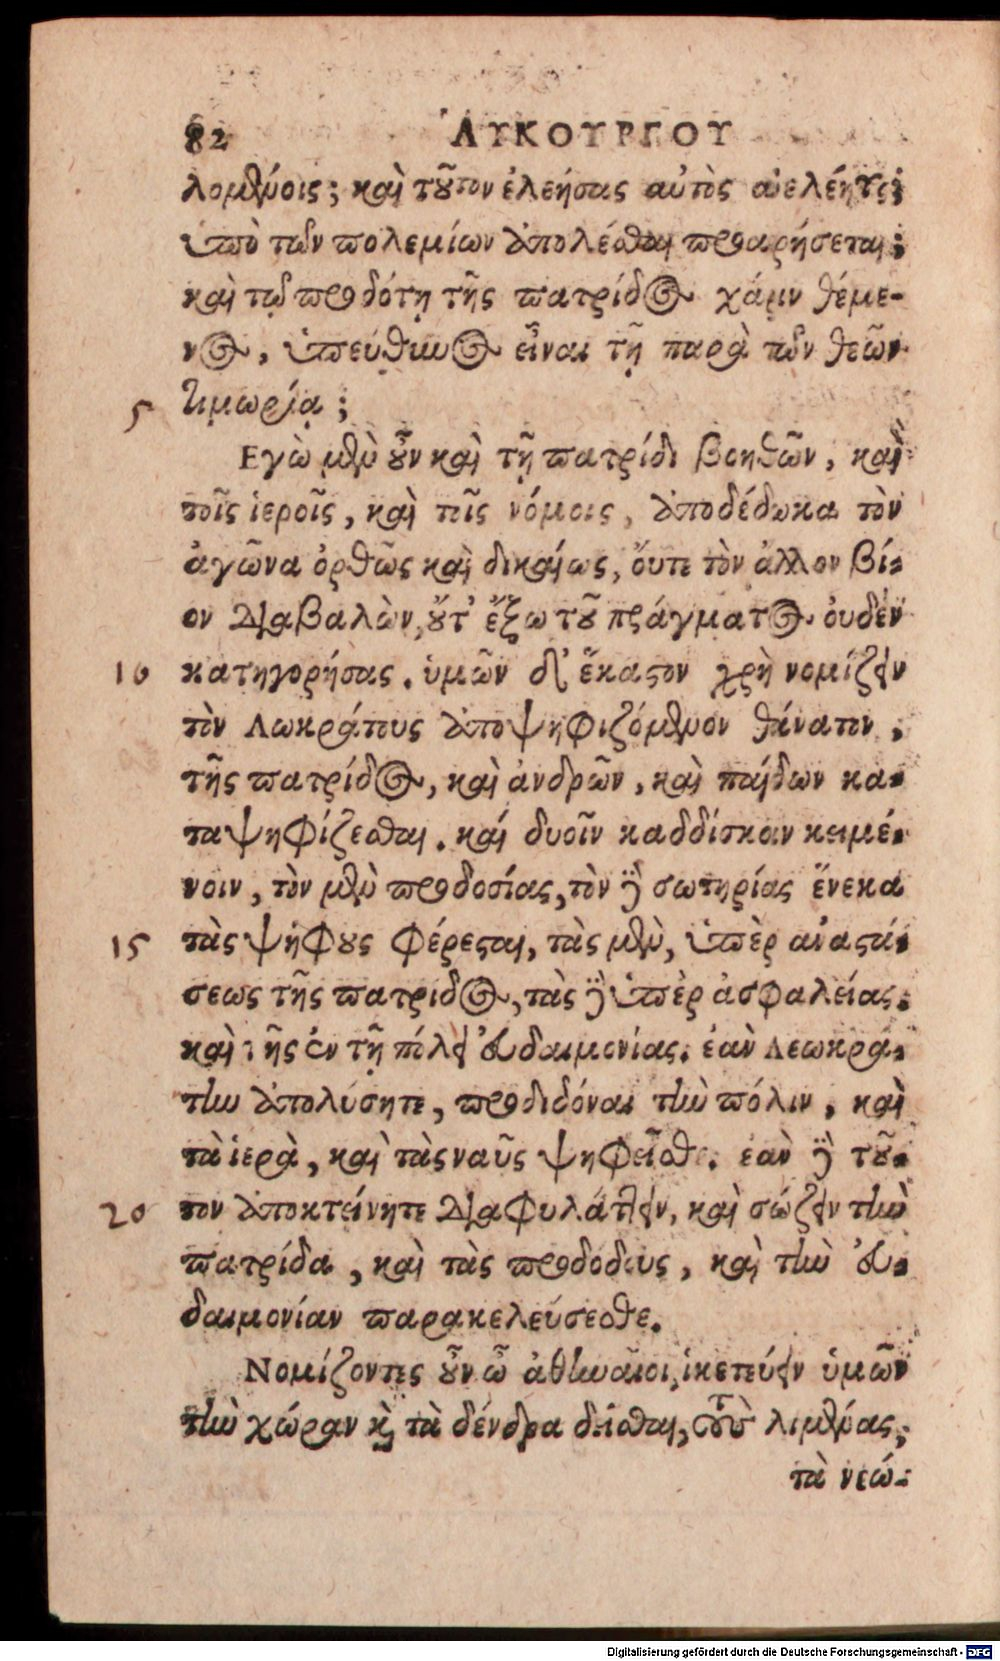 82 ΛΥΚΟΥΡΓΟΥ
λομένοις; καὶ τοῦτον ἐλεήσας αὐτὸς ἀνελεήτως
ὑπὸ τῶν πολεμίων ἀπολέσθαι προαιρήσεται;
καὶ τῷ προδότῃ τῆς πατρίδος χάριν θέμε-
νος, ὑπεύθυνος εἶναι τῇ παρὰ τῶν θεῶν
5 τιμωρίᾳ;
Εγὼ μὲν οὖν καὶ τῇ πατρίδι βοηθῶν, καὶ
τοῖς ἱεροῖς, καὶ τοῖς νόμοις, ἀποδέδωκα τὸν
ἀγῶνα ὀρθῶς καὶ δικαίως, ὄυτε τὸν ἄλλον βί-
ον διαβαλὼν, οὔτ' ἔξω τοῦ πράγματος ὀυδὲν
10 κατηγορήσας. ὑμῶν δ' ἕκαστον χρὴ νομίζειν
τὸν Λωκράτους ἀποψηφιζόμενον θάνατον,
τῆς πατρίδος, καὶ ἀνδρῶν, καὶ παίδων κα-
ταψηφίζεσθαι. καί δυοῖν καδδίσκοιν κειμέ-
νοιν, τὸν μὲν προδοσίας, τὸν δὲ σωτηρίας ἕνεκα
15 τὰς ψήφους φέρεσται, τὰς μὲν, ὑπὲρ ἀναστά-
σεως τῆς πατρίδος, τὰς δὲ ὑπὲρ ἀσφαλείας.
καὶ τῆς ἐν τῇ πόλει εὐδαιμονίας. ἐὰν Λεωκρά-
την ἀπολύσητε, προδιδόναι τὴν πόλιν, καὶ
τὰ ἱερὰ, καὶ τὰς ναῦς ψηφεῖσθε. ἐὰν δὲ τοῦ-
20 τον ἀποκτείνητε διαφυλάττειν, καὶ σώζειν τὴν
πατρίδα, καὶ τὰς προδόδους, καὶ τὴν εὐ-
δαιμονίαν παρακελεύσεσθε.
Νομίζοντες οὖν ὦ ἀθηναῖοι, ἱκετεύειν ὑμῶν
τὴν χώραν καὶ τὰ δένδρα δεῖσθαι, τοὺς λιμένας,
τὰ νεώ-
Digitalisierung gefördert durch die Deutsche Forschungsgemeinschaft - DFG